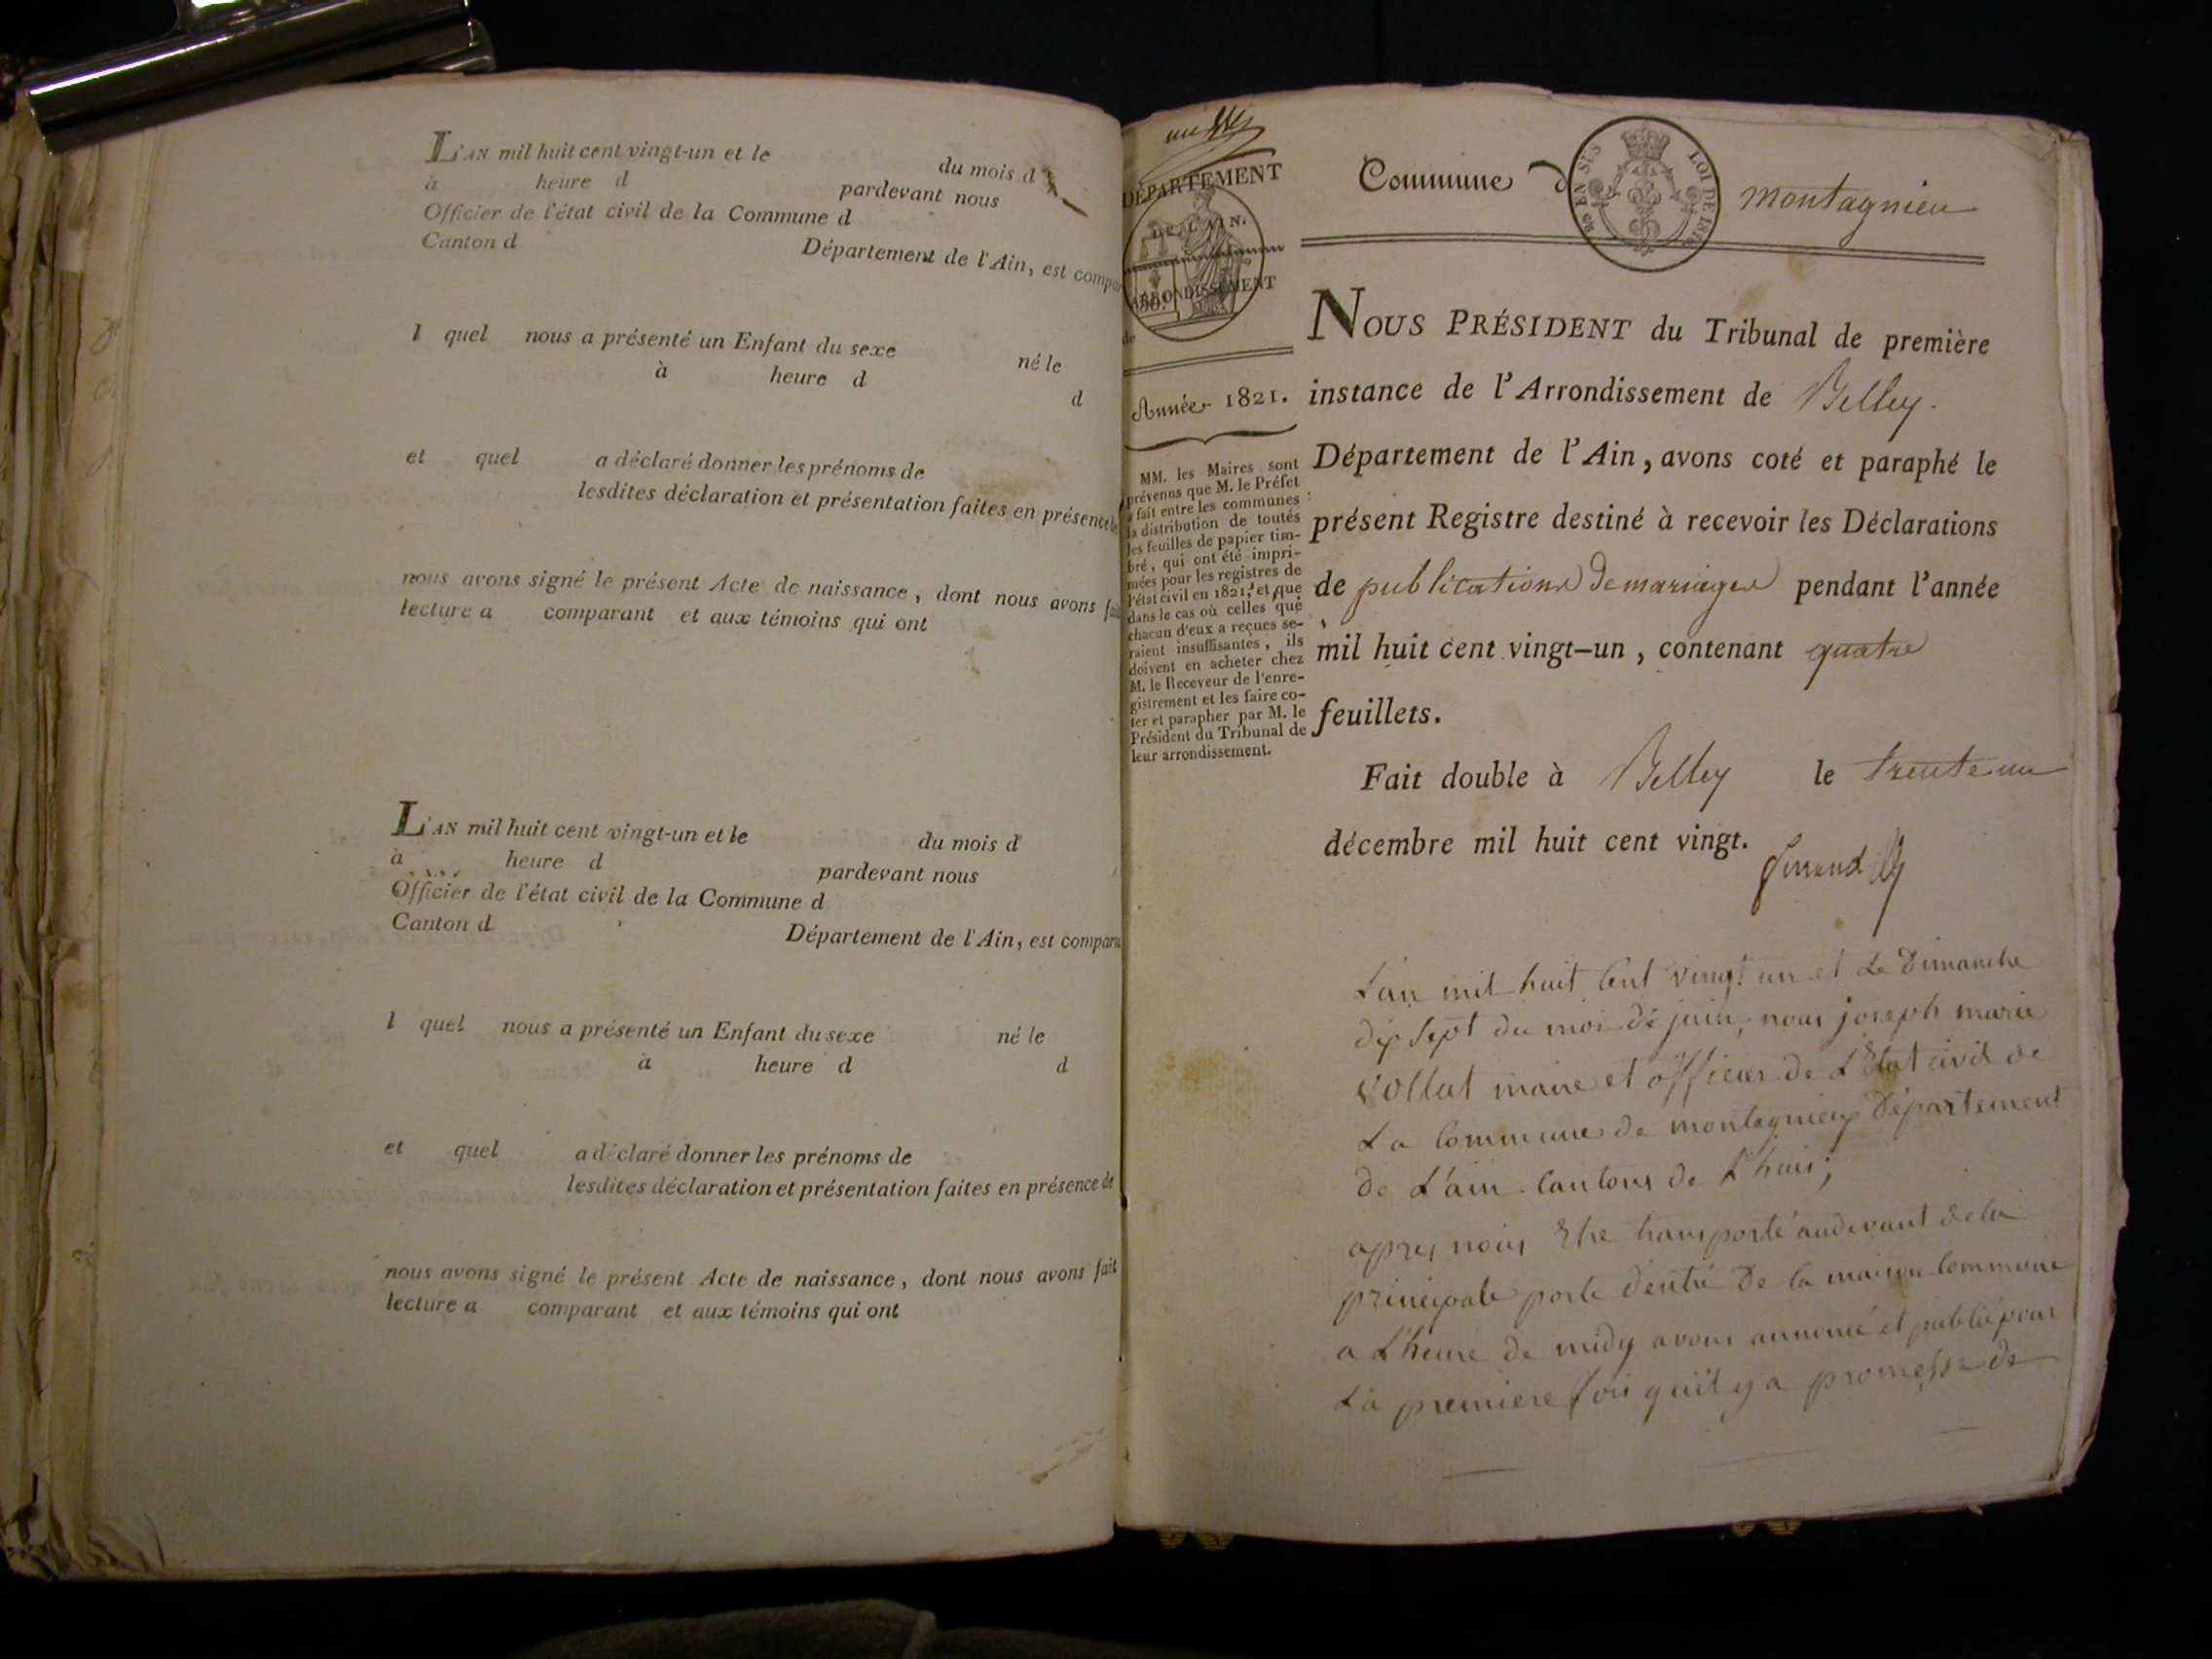 L'AN mil huit cent vingt-un et le du mois d
à heure d pardevant nous
Officier de l'état civil de la Commune d
Canton d Département de l'Ain, est compar
l quel nous a présenté un Enfant du sexe né le
à heure d
d
et quel a déclaré donner les prénoms de
lesdites déclaration et présentation faites en présence
nous avons signé le présent Acte de naissance, dont nous avons fait
lecture a comparant et aux témoins qui ont
L'AN mil huit cent vingt-un et le du mois d
à heure d pardevant nous
Officier de l'état civil de la Commune d
Canton d Département de l'Ain, est comparu
l quel nous a présenté un Enfant du sexe né le
à heure d d
et quel a déclaré donner les prénoms de
lesdites déclaration et présentation faites en présence de
nous avons signé le présent Acte de naissance, dont nous avons fait
lecture a comparant et aux témoins qui ont
DÉPARTEMENT
DE L'AIN.
ARRONDISSEMENT
de
Année 1821.
MM. les Maires sont
prévenus que M. le Préfet
a fait entre les communes
la distribution de toutés
les feuilles de papier tim-
bré, qui ont été impri-
mées pour les registres de
l'état civil en 1821, et que
dans le cas où celles que
chacun d'eux a reçues se-
raient insuffisantes, ils
doivent en acheter chez
M. le Receveur de l'enre-
gistrement et les faire co-
ter et parapher par M. le
Président du Tribunal de
leur arrondissement.
Commune d montagnieu
EN SUS LOI DE 1816
NOUS PRÉSIDENT du Tribunal de première
instance de l'Arrondissement de Belley.
Département de l'Ain, avons coté et paraphé le
présent Registre destiné à recevoir les Déclarations
de publications de mariages pendant l'année
mil huit cent vingt-un, contenant quatre
feuillets.
Fait double à Belley le trente un
décembre mil huit cent vingt.
L'an mil huit Cent vingt un et Le Dimanche
dix Sept du moi de juin, nous joseph marie
vollat maire et officier de L'Etat civil de
La Commune de montagnieu Département
de L'ain Cantons de Lhuis;
apres nous Etre transporté audevant de la
principale porte d'entré de la maison Commune
a L'heure de midy avons annoncé et publié pour
La premiere fois quil y a promesse de